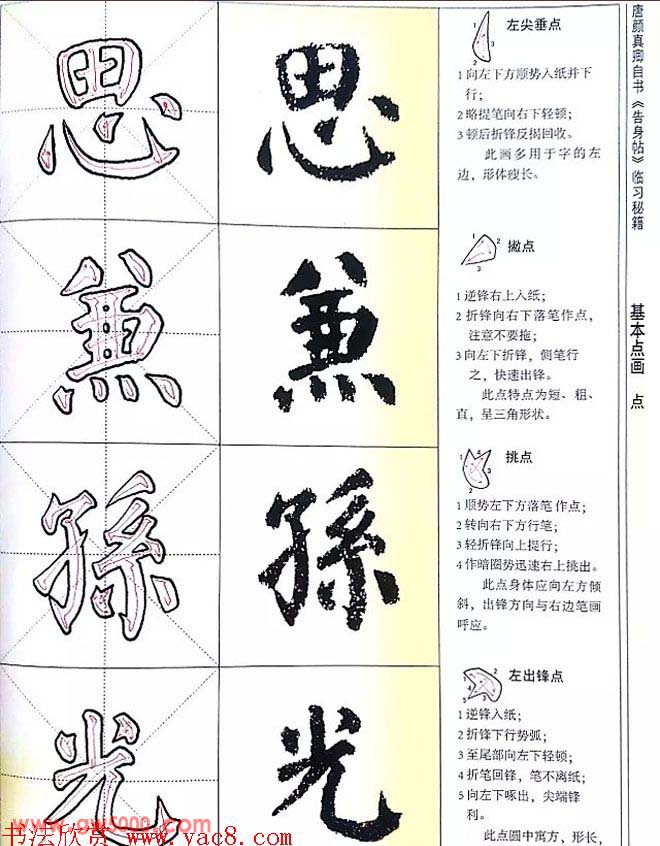 唐颜真卿自书《告身帖》临习秘籍
基本点画 点
思
思
1
2
3
左尖垂点
1 向左下方顺势入纸并下
行;
2 略提笔向右下轻顿;
3 顿后折锋反揭回收。
此画多用于字的左
边,形体瘦长。
兼
兼
1
2
3
撇点
1 逆锋右上入纸;
2 折锋向右下落笔作点,
注意不要拖;
3 向左下折锋,侧笔行
之,快速出锋。
此点特点为短、粗、
直,呈三角形状。
孫
孫
1
2
3
4
挑点
1 顺势左下方落笔作点;
2 转向右下方行笔;
3 轻折锋向上提行;
4 作暗圈势迅速右上挑出。
此点身体应向左方倾
斜,出锋方向与右边笔画
呼应。
光
光
1
2
3
4
5
左出锋点
1 逆锋入纸;
2 折锋下行势弧;
3 至尾部向左下轻顿;
4 折笔回锋,笔不离纸;
5 向左下啄出,尖端锋
利。
此点圆中寓方,形长,
www.gw5000.com
书法欣赏 www.yac8.com